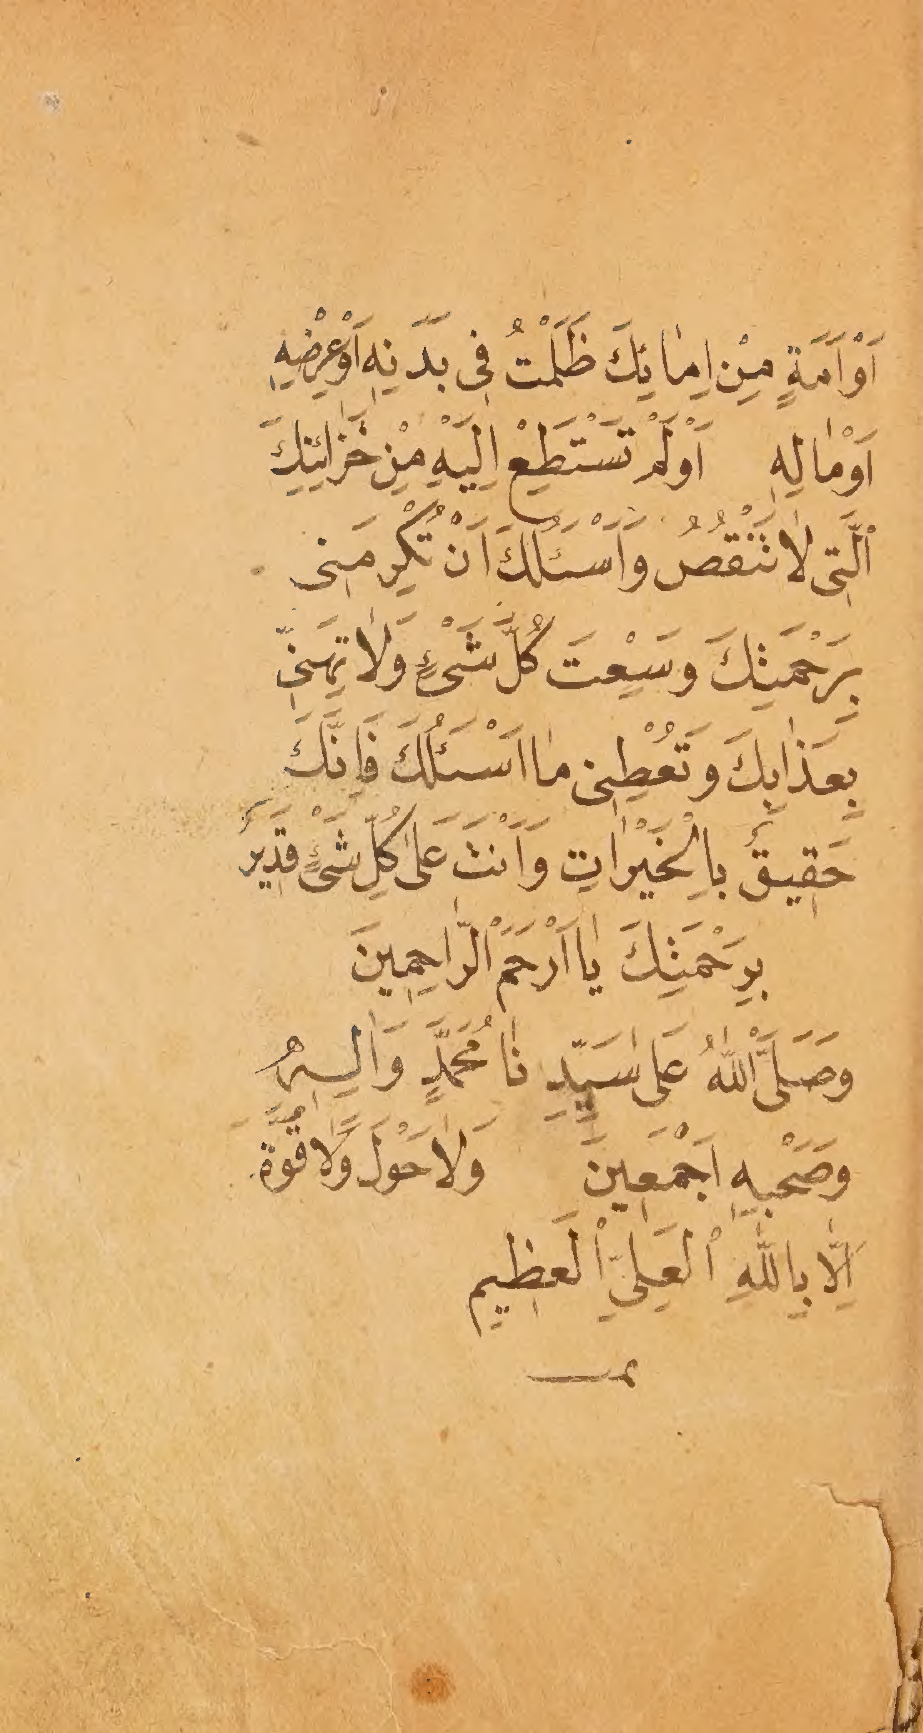 اَوْ اَمَةٍ مِنْ اِمٰائِكَ ظَلَمْتُ فِى بَدَنِهِ اَوْ عِرْضِهِ
اَوْ مٰالِهِ اَوْ لَمْ تَسْتَطِعْ اِلَيْهِ مِنْ خَزٰائِنِكَ
الَّتِى لٰا تَنْقُصُ وَ اَسْئَلُكَ اَنْ تُكْرِمَنِى
بِرَحْمَتِكَ وَسِعْتَ كُلَّ شَىْءٍ وَلٰا تُهِنِّى
بِعَذٰابِكَ وَ تُعْطِنِى مٰا اَسْئَلُكَ فَاِنَّكَ
حَقِيقٌ بِالْخَيْرٰاتِ وَ اَنْتَ عَلٰى كُلِّ شَىْءٍ قَدِيرٌ
بِرَحْمَتِكَ يٰا اَرْحَمَ الرّٰاحِمِينَ
وَصَلَّى اللّٰهُ عَلٰى سَيِّدِنٰا مُحَمَّدٍ وَاٰلِهِ
وَصَحْبِهِ اَجْمَعِينَ وَلٰا حَوْلَ وَلٰا قُوَّةَ
اِلّٰا بِاللّٰهِ الْعَلِىِّ الْعَظِيمِ